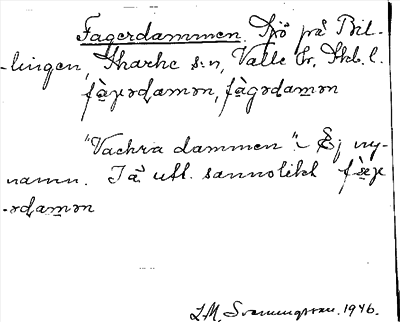 Fagerdammen. Sjö på Bil-
-lingen, Skarke s:n, Valle hr, Skb. l.
fàgərdamən, fàgədamən
"Vackra dammen". Ej ny-
namn. Tä utl. sannolikt
-ərdamən
L.M. Svanungsson. 1946.